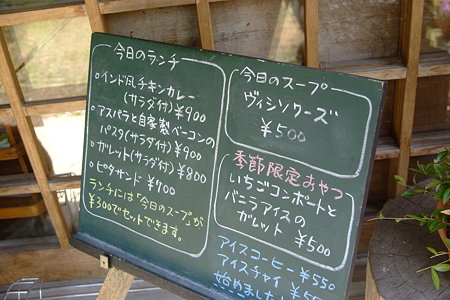 今日のランチ
○インド風チキンカレー
(サラダ付)¥900
○アスパラと自家製ベーコンの
パスタ(サラダ付)¥900
○ガレット(サラダ付)¥800
○ピタサンド ¥700
ランチには"今日のスープ"が
¥300でセットできます。
今日のスープ
ヴィシソワーズ
¥500
季節限定おやつ
いちごコンポートと
バニラアイスの
ガレット
¥500
アイスコーヒー ¥550
アイスチャイ
始めました